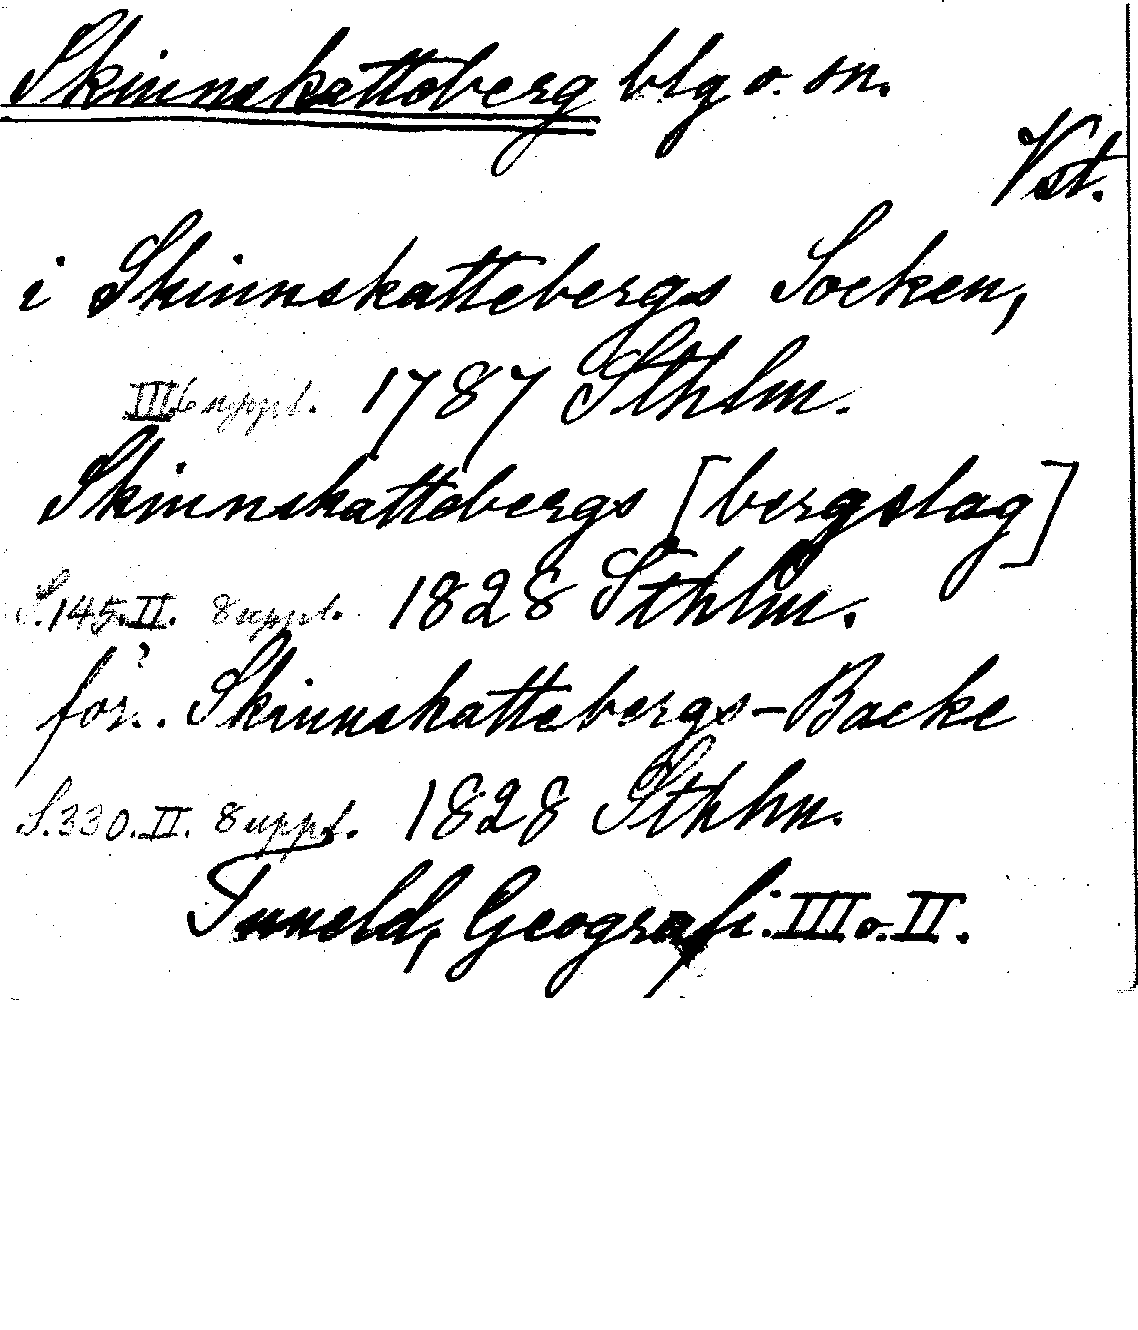 Skinnskatteberg blg o. sn.
Vst.
i Skinnskattebergs Socken,
III 6 uppl. 1787 Sthlm.
Skinnskattebergs [bergslag]
S. 145. II. 8 uppl. 1828 Sthlm.
för. Skinnskattebergs-Backe
S. 330. II. 8 uppl. 1828 Sthlm.
Tuneld, Geografi. III o. II.